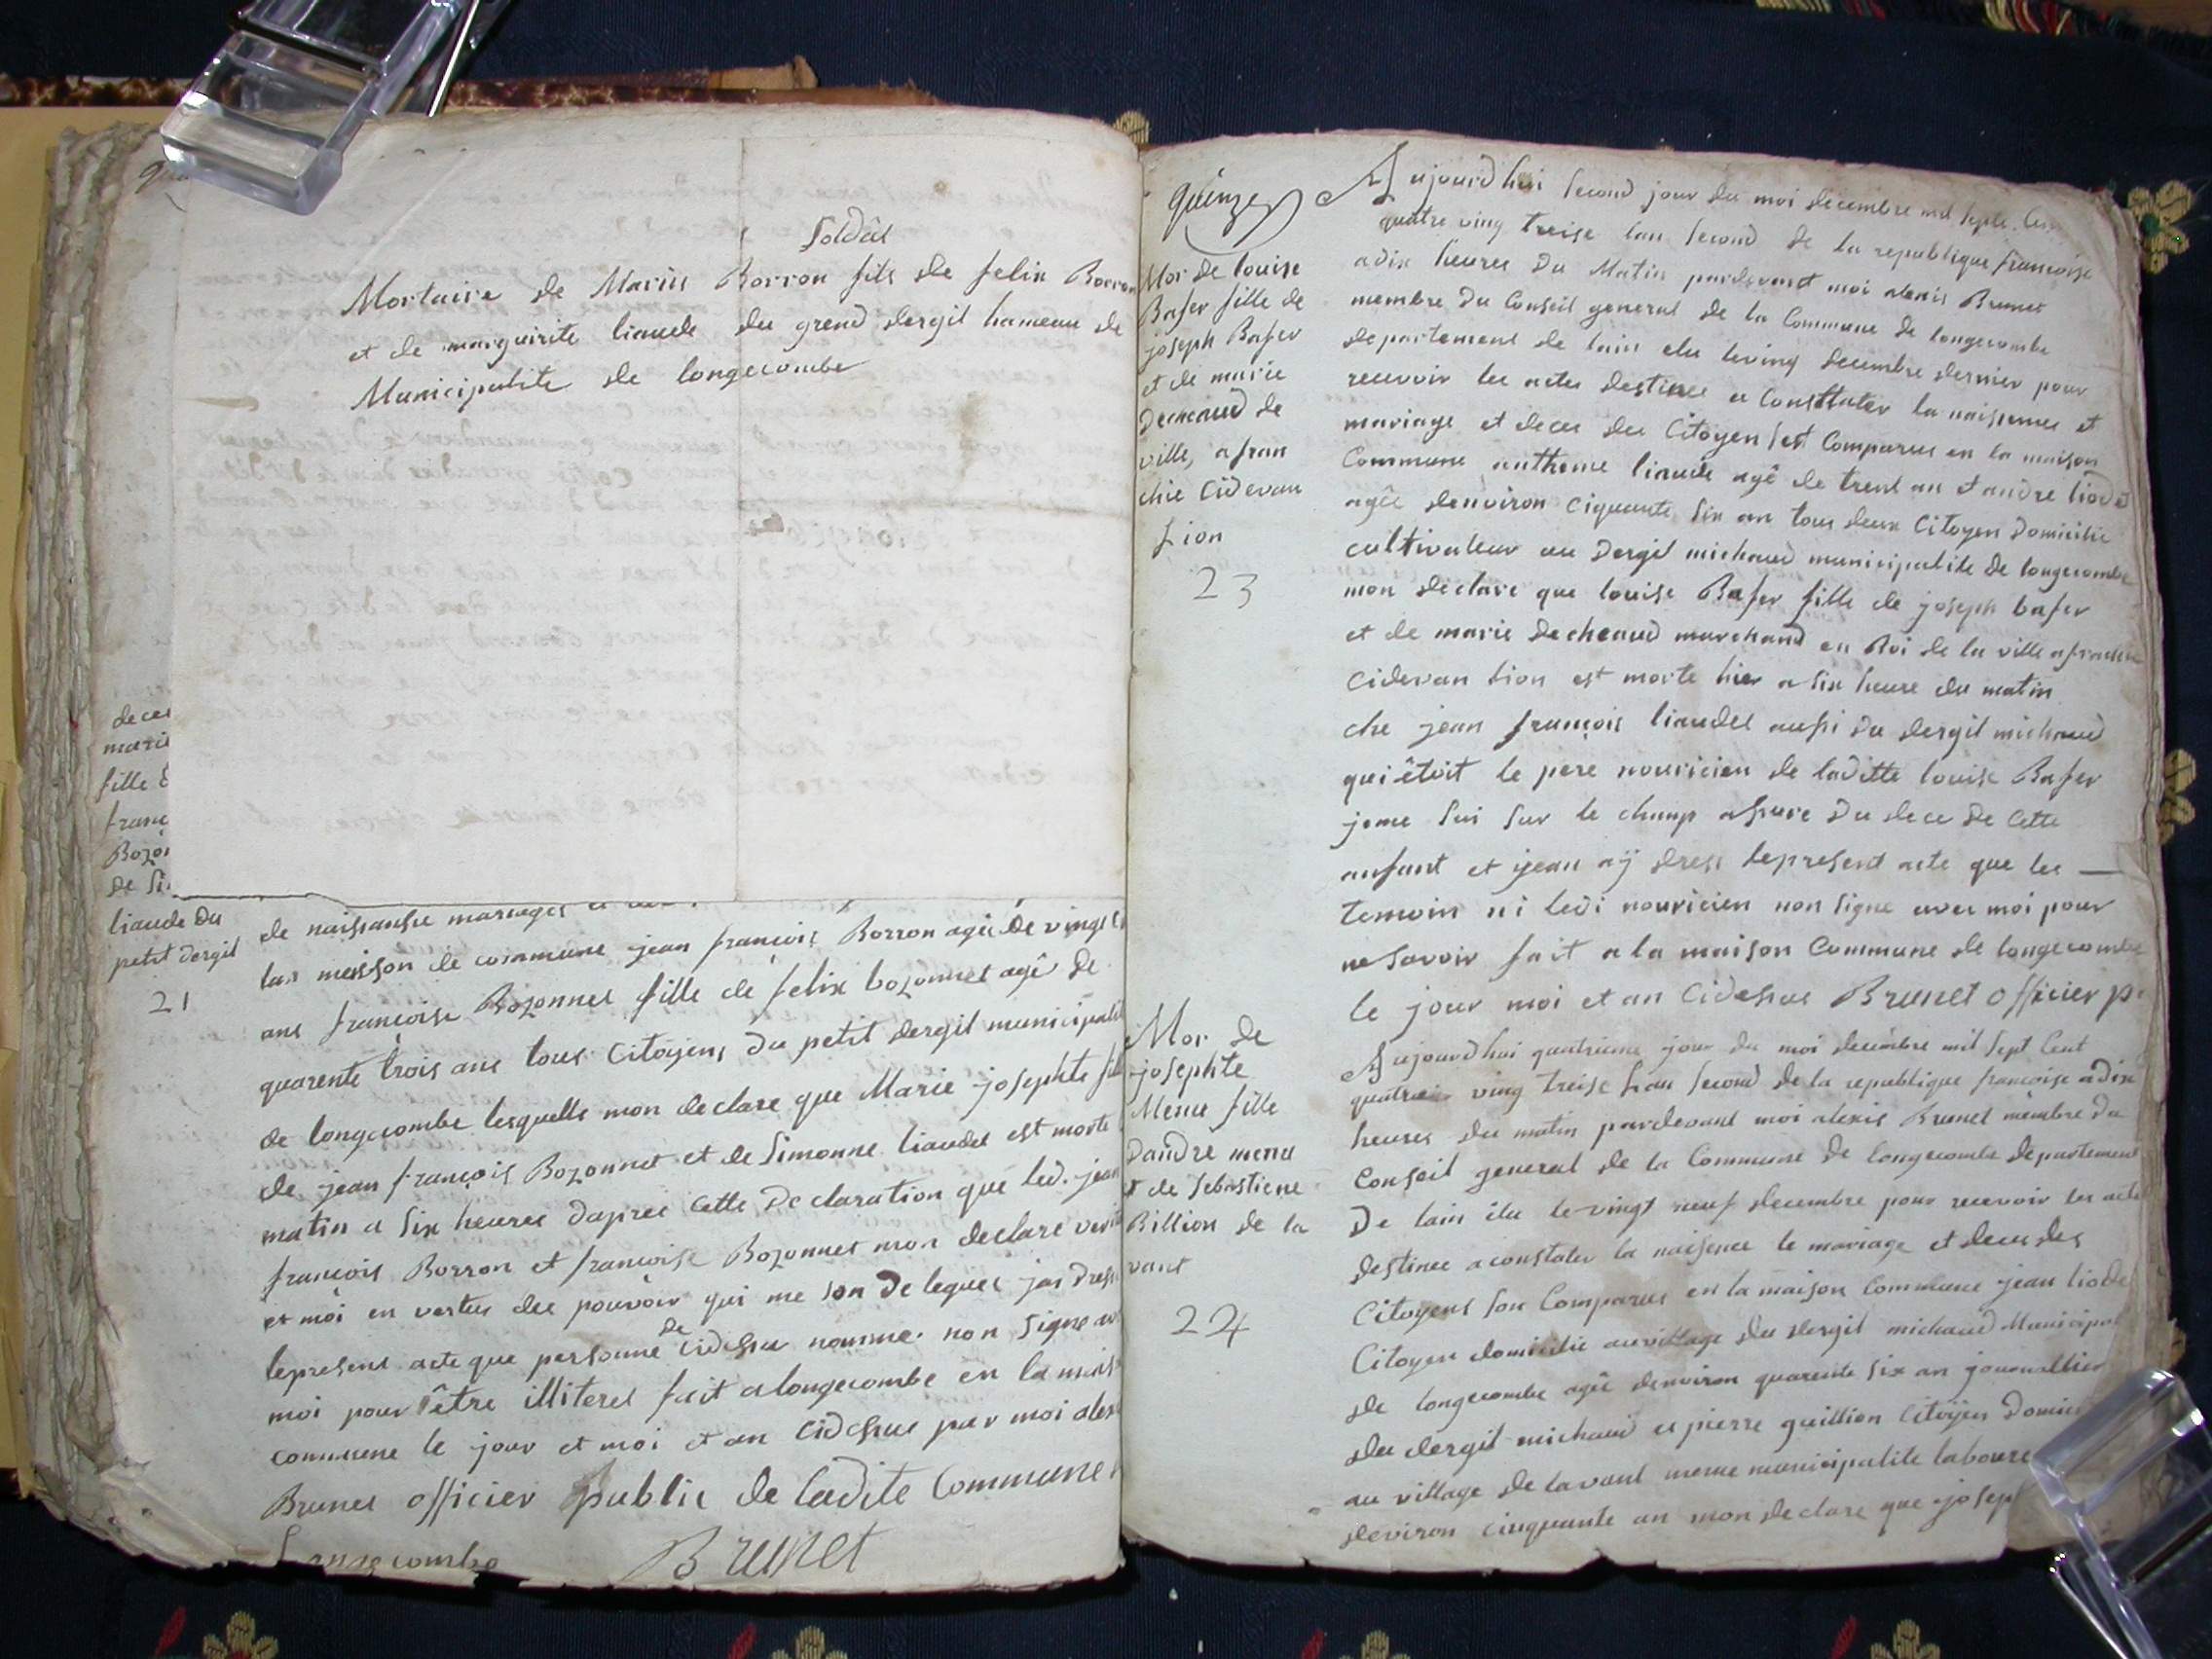 Soldat
Mortaire de Marin Borron fils de felix Borron
et de marguirite liaude du grend dergit hameau de
Municipalite de longecombe
deces
marie
fille
franc
Bozon
de Si
liaude du
petit dergit
21
de naissansse mariages
lan meisson de commune jean francois Borron ageé de vingt
ans francoise Bozonnet fille de felix bozonnet agé de
quarente trois ans tous Citoyens du petit dergit municipali
de longecombe lesquelle mon declare que Marie josephte fil
de jean françois Bozonnet et de Simonne liaudet est morte
matin a Six heures dapres cette Declaration que led. jean
francois Borron et francoise Bozonnet mon declare
et moi en vertus des pouvoir qui me son De leguer jai dress
lepresent acte que personne De cidessu nomme non Signe av
moi pour être illiteret fait alongecombe en la mais
commune le jour et moi et an cidessus par moi alex
Brunet officier public de ladite Commune
Longecombe Brunet
quinze
Mor de louise
Baser fille de
joseph Baser
et de marie
Decheaud de
ville, afran
chie Cidevan
Lion
23
Aujourdhui Second jour du moi decembre mil septe Cen
quatre ving treise lan Second de la republique francoise
adix heures Du Matin pardevant moi alexis Brunet
membre Du Conseil general de la Commune de longecombe
departement de lain elu leving decembre dernier pour
recevoir les actes destinee a Consttater la naissence et
mariage et deces des Citoyen Set Comparus en la maison
Commune antheme liaude agê de trent an et andre liode
agêe denviron Ciquante Six an tous deux Citoyen Domicilie
cultivateur au Dergit michaud municipalite de longecombe
mon declare que louise Baser fille de joseph baser
et de marie decheaud marchand en Roi de la ville afranchie
Cidevan Lion est morte hier a Six heure du matin
che jean françois liaudet aussi du dergit michaud
qui êtoit le pere nouricien de laditte louise Baser
jeme Sui Sur le champ assure Du dece De Cette
anfant et jean aÿ dress lepresent acte que les —
temoin ni ledi nouricien non Signe avec moi pour
ne Savoir fait a la maison Commune de longecombe
le jour moi et an Cidessus Brunet officier p.
Mor de
josephte
Menu fille
Dandre menu
et de Sebastiene
Billion de la
vant
24
Aujourdhui quatrieme jour du moi decembre mil Sept Cent
quatre ving treise Lan Second de la republique francoise adix
heures du matin pardevant moi alexis Brunet membre du
Conseil general de la Commune De longecombe departement
De lain êlu le vingt neuf decembre pour recevoir les acte
destinee a constater la naissence le mariage et deces des
Citoyens Son Comparus en la maison Commune jean liode
Citoyen domicilie auvillage du dergit michaud Municipal
de longecombe agêe denviron quarente Six an journallier
du dergit michaud et pierre guillion Citoyen Domici
au village de lavant meme municipalite laboure
deviron cinquante an mon declare que josep